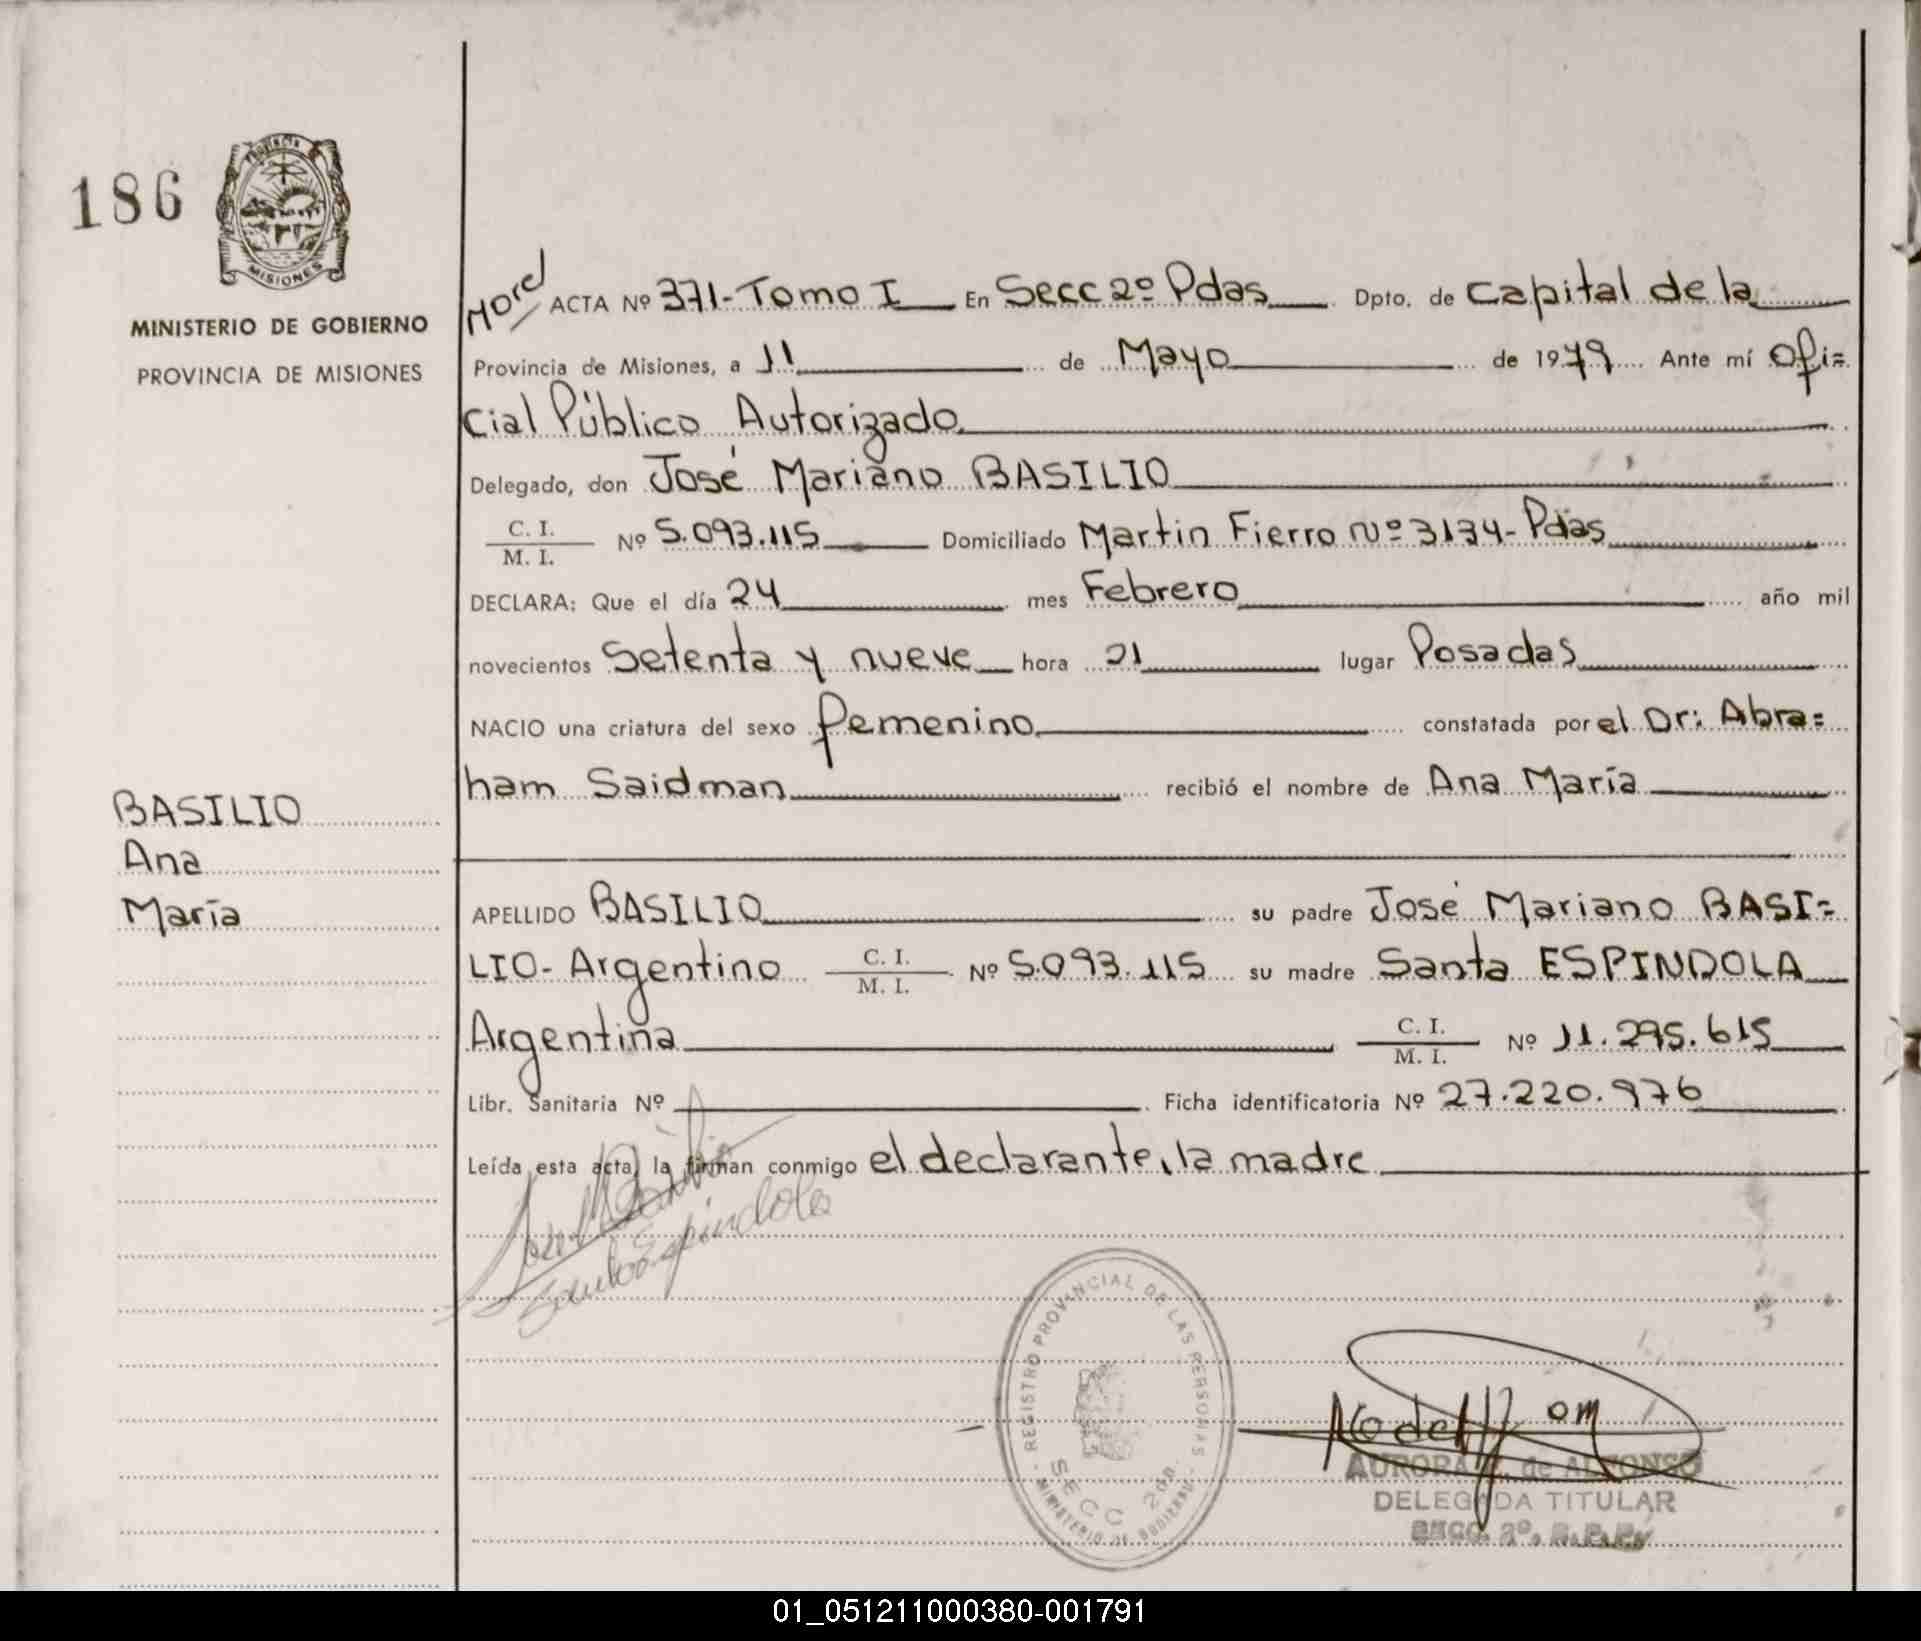 186
PROVINCIA
MISIONES
MINISTERIO DE GOBIERNO
PROVINCIA DE MISIONES
Morel ACTA Nº 371-Tomo I En Secc 2º Pdas Dpto. de Capital de la
Provincia de Misiones, a 11 de Mayo de 1979 Ante mí Ofi=
cial Público Autorizado
Delegado, don José Mariano BASILIO
C. I.
M. I. Nº 5.093.115 Domiciliado Martin Fierro Nº 3134-Pdas
DECLARA: Que el día 24 mes Febrero año mil
novecientos Setenta y nueve hora 21 lugar Posadas
NACIO una criatura del sexo femenino constatada por el Dr: Abra=
ham Saidman recibió el nombre de Ana María
BASILIO
Ana
María
APELLIDO BASILIO su padre José Mariano BASI=
LIO- Argentino C. I. M. I. Nº 5.093.115 su madre Santa ESPINDOLA
Argentina C. I. M. I. Nº 11.295.615
Libr. Sanitaria Nº Ficha identificatoria Nº 27.220.976
Leída esta acta, la firman conmigo el declarante, la madre
Espindola
- REGISTRO PROVINCIAL DE LAS PERSONAS -
SECC 2da.
MINISTERIO DE GOBIERNO
AURORA de ALFONSO
DELEGADA TITULAR
SECC. 2º. R. P. P.
01_051211000380-001791